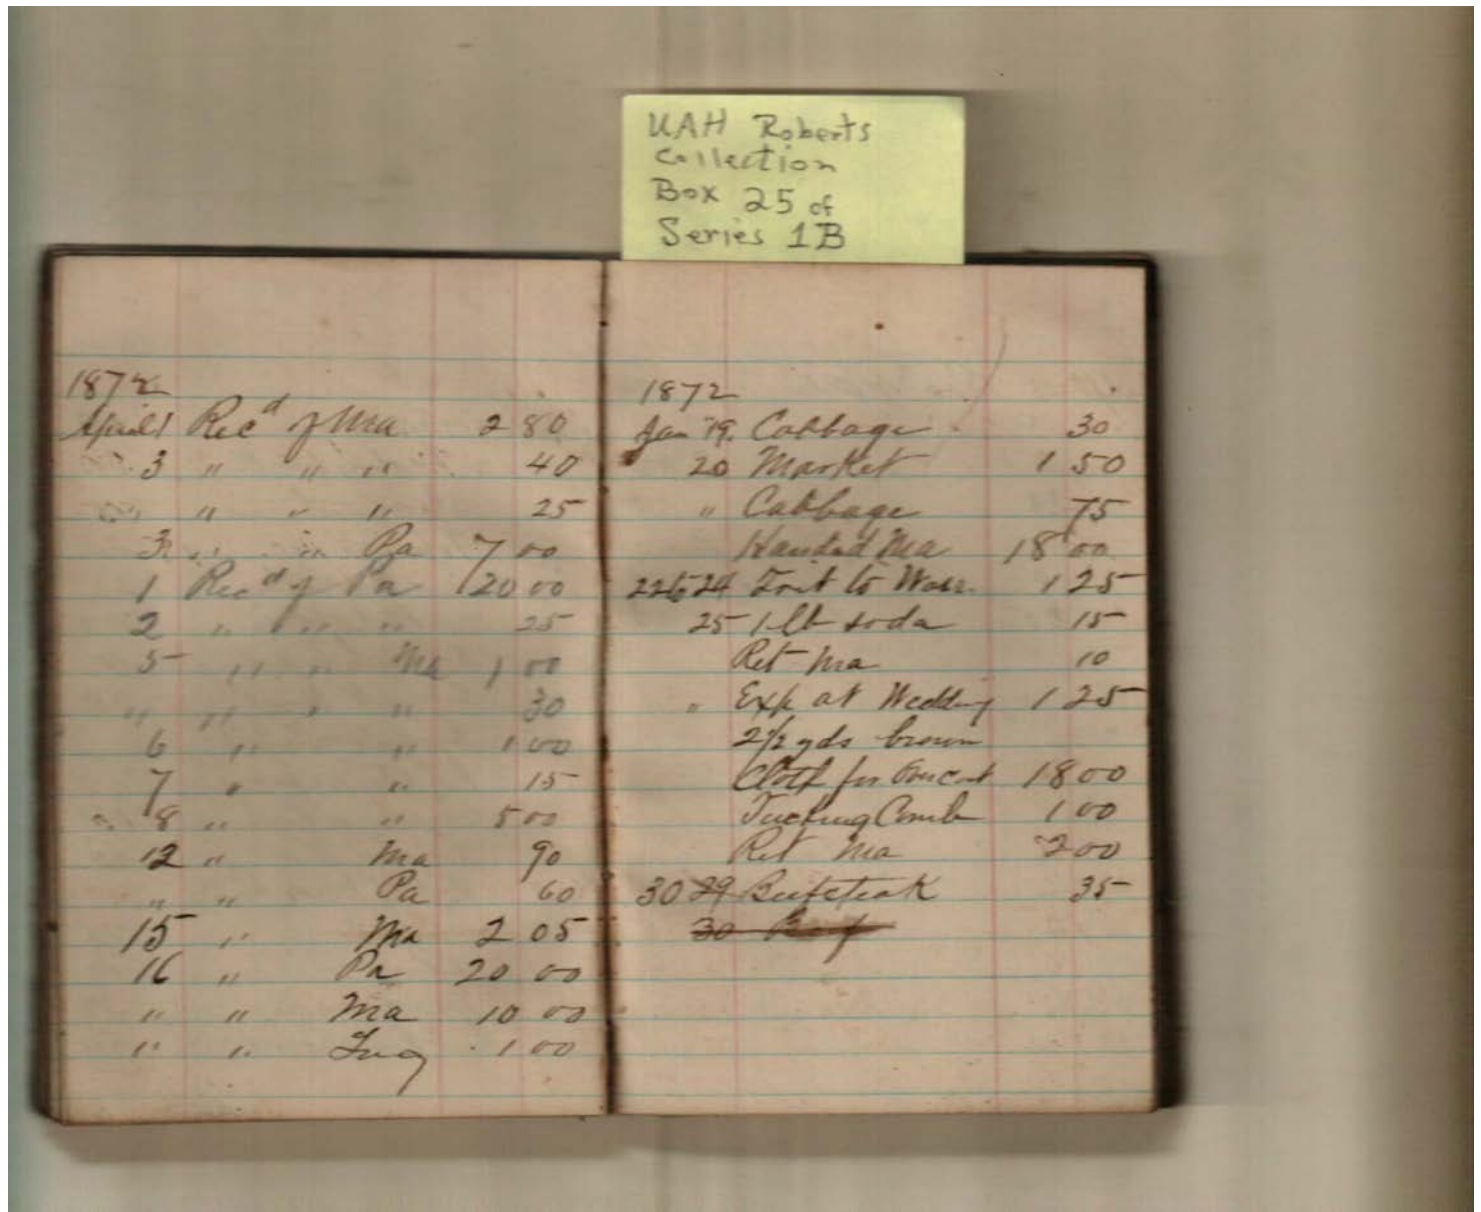 UAH Roberts
Collection
Box 25 of
Series 1B
1872
April 1 Recd of Ma 2 80
3 " " " 40
" " " 25
3 " " Pa 7 00
1 Recd of Pa 20 00
2 " " " 25
5 " " Ma 1 00
" " " " 30
6 " " 1 00
7 " " 15
8 " " 5 00
12 " Ma 90
" " Pa 60
15 " Ma 2 05
16 " Pa 20 00
" " Ma 10 00
" " 1 00
1872
Jan 19. Cabbage 30
20 Market 1 50
" Cabbage 75
Handed Ma 18 00
24 to 1 25
25 1 lb soda 15
Ret Ma 10
" Exp at Wedding 1 25
2 1/2 yds brown
Cloth for Overcoat 18 00
Tucking Comb 1 00
Ret Ma 2 00
30 29 Beefsteak 35
30 Beef